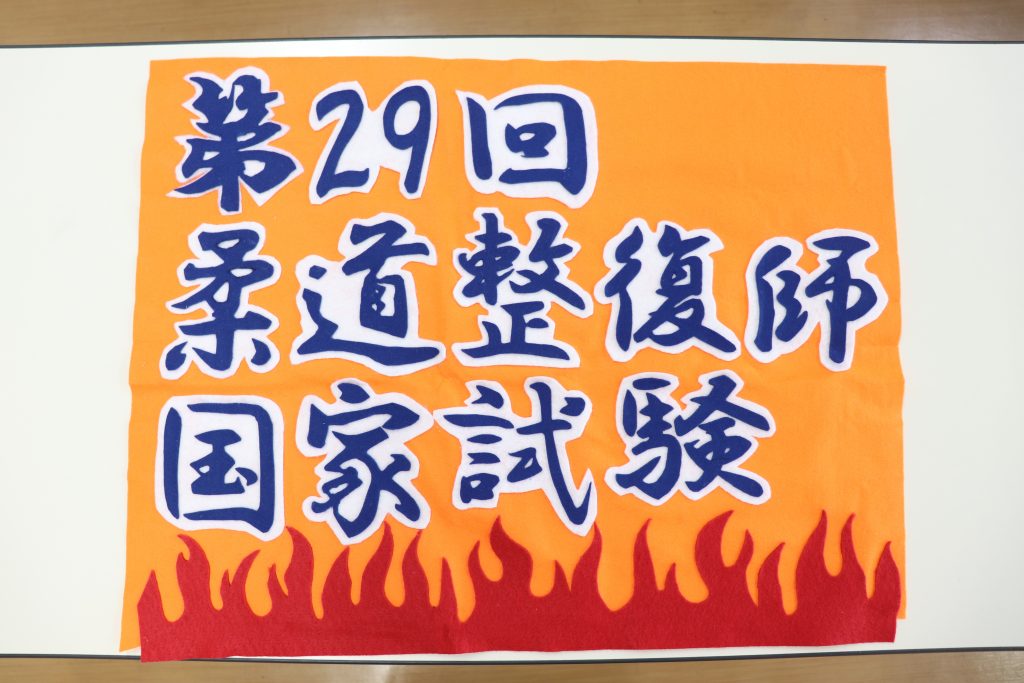 第29回
柔道整復師
国家試験